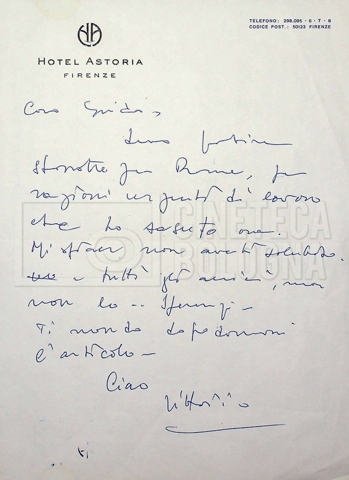 TELEFONO: 298.095 - 6 - 7 - 8
CODICE POST.: 50123 FIRENZE
HA
HOTEL ASTORIA
FIRENZE
Caro Guido,
sono
stanotte per Roma, per
ragioni urgenti di lavoro
che ho saputo ora.
Mi spiace non averti salutato
e tutti gli amici, ma
non lo ..
Ti mando dopodomani
l'articolo -
Ciao
Vittorio
CINETECA
BOLOGNA